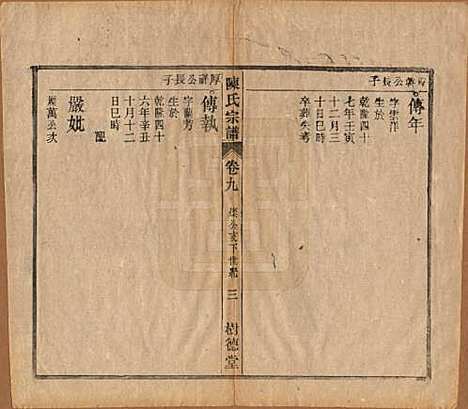 厚幹公長子
傳年
字崇洋
生於
乾隆四十
七年壬寅
十二月三
十日巳時
卒葬失考
陳氏宗譜
卷九
公支下世系
三
樹德堂
厚祥公長子
傳執
字蘭芳
生於
乾隆四十
六年辛丑
十月十二
日巳時
配
嚴妣
萬公次